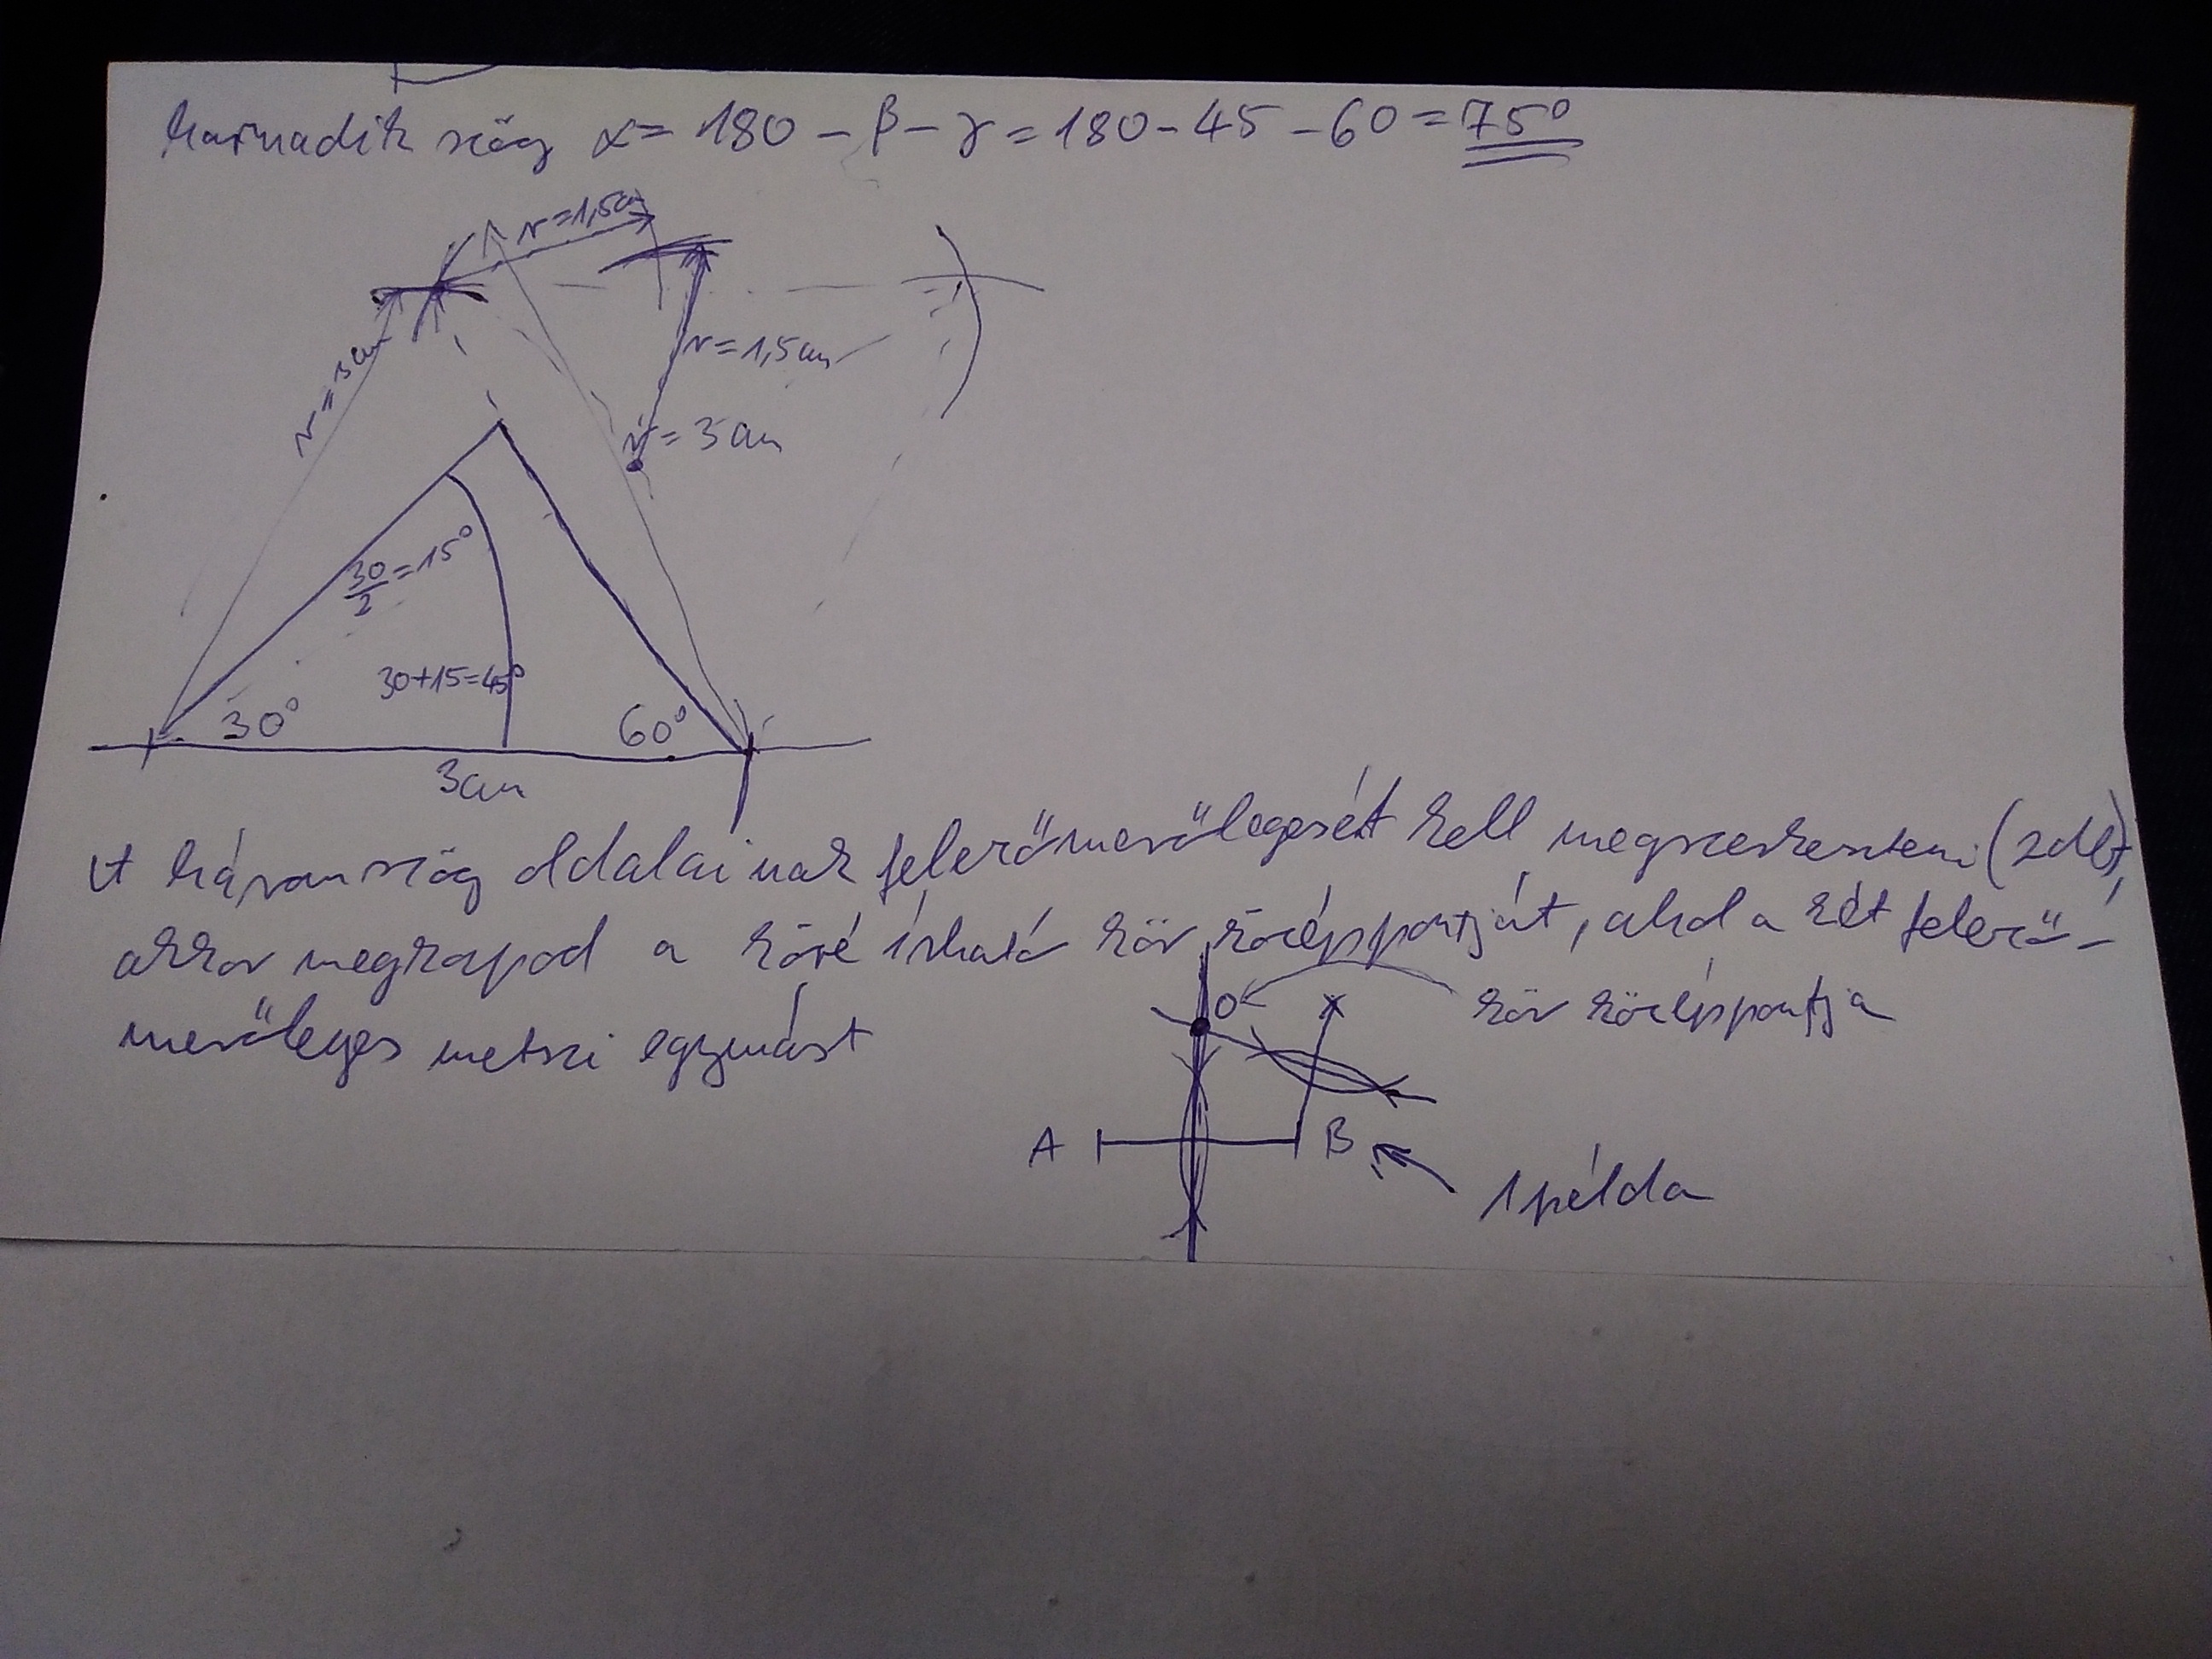 harmadik szög α = 180 - β - γ = 180 - 45 - 60 = 75°
r=1,5cm
r=3cm
r=1,5cm
r=3cm
30/2=15°
30+15=45°
30°
60°
3cm
A háromszög oldalainak felezőmerőlegesét kell megszerkeszteni (2 dbt),
akkor megkapod a köré írható kör középpontját, ahol a két felező-
merőleges metszi egymást
O
kör középpontja
A
B
1 példa